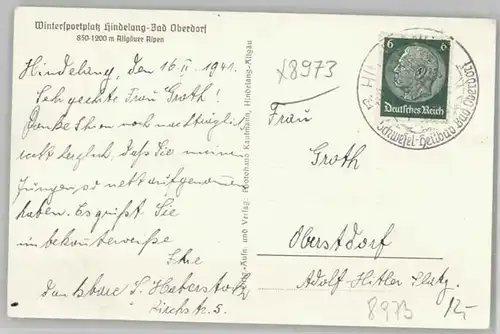 Wintersportplatz Hindelang-Bad Oberdorf
850-1200 m Allgäuer Alpen
Hindelang, den 16.II. 1941.
Sehr geehrte Frau Groth!
Danke Ihnen noch nachträglich
recht herzlich, daß Sie meinen
Jungen so nett aufgenommen
haben. Es grüßt Sie
unbekannterweise
Ihre
dankbare S. Haberstock
Kirchstr. 5.
Orig.-Aufn. und Verlag: Photohaus Kaufmann, Hindelang-Allgäu
x8973
6 6
Deutsches Reich
Schwefel-Heilbad Bad Oberdorf
Frau
Groth
Oberstdorf
Adolf-Hitler Platz.
8973
12,-